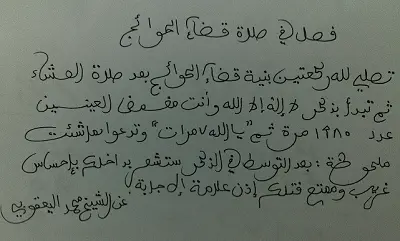 فصل في صلاة قضاء الحوائج
تصلي لله ركعتين بنية قضاء الحوائج بعد صلاة العشاء
ثم تبدأ بذكر لا إله إلا الله وأنت مغمض العينين
عدد ١٩٨٠ مرة ثم "يا الله ٧ مرات" وتدعوا بما شئت
ملحوظة : بعد التوسط في الذكر ستشعر بداخلك بإحساس
غريب وممتع فتلكم إذن علامة الإجابة
عن الشيخ محمد اليعقوبي